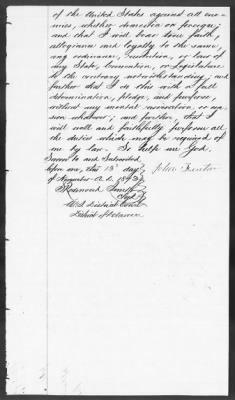 of the United States against all ene-
mies, whether domestic or foreign;
and that I will bear true faith,
allegiance and loyalty to the same,
any ordinance, resolution, or law of
any State, Convention, or Legislature
to the contrary notwithstanding; and
further that I do this with a full
determination, pledge, and purpose,
without any mental reservation, or eva-
sion whatever; and further, that I
will well and faithfully perform all
the duties which may be required of
me by law. So help me God.
Sworn to and Subscribed
before me, this 13th day
of August A. D. 186
John
Smith
U.S. District Court
District of